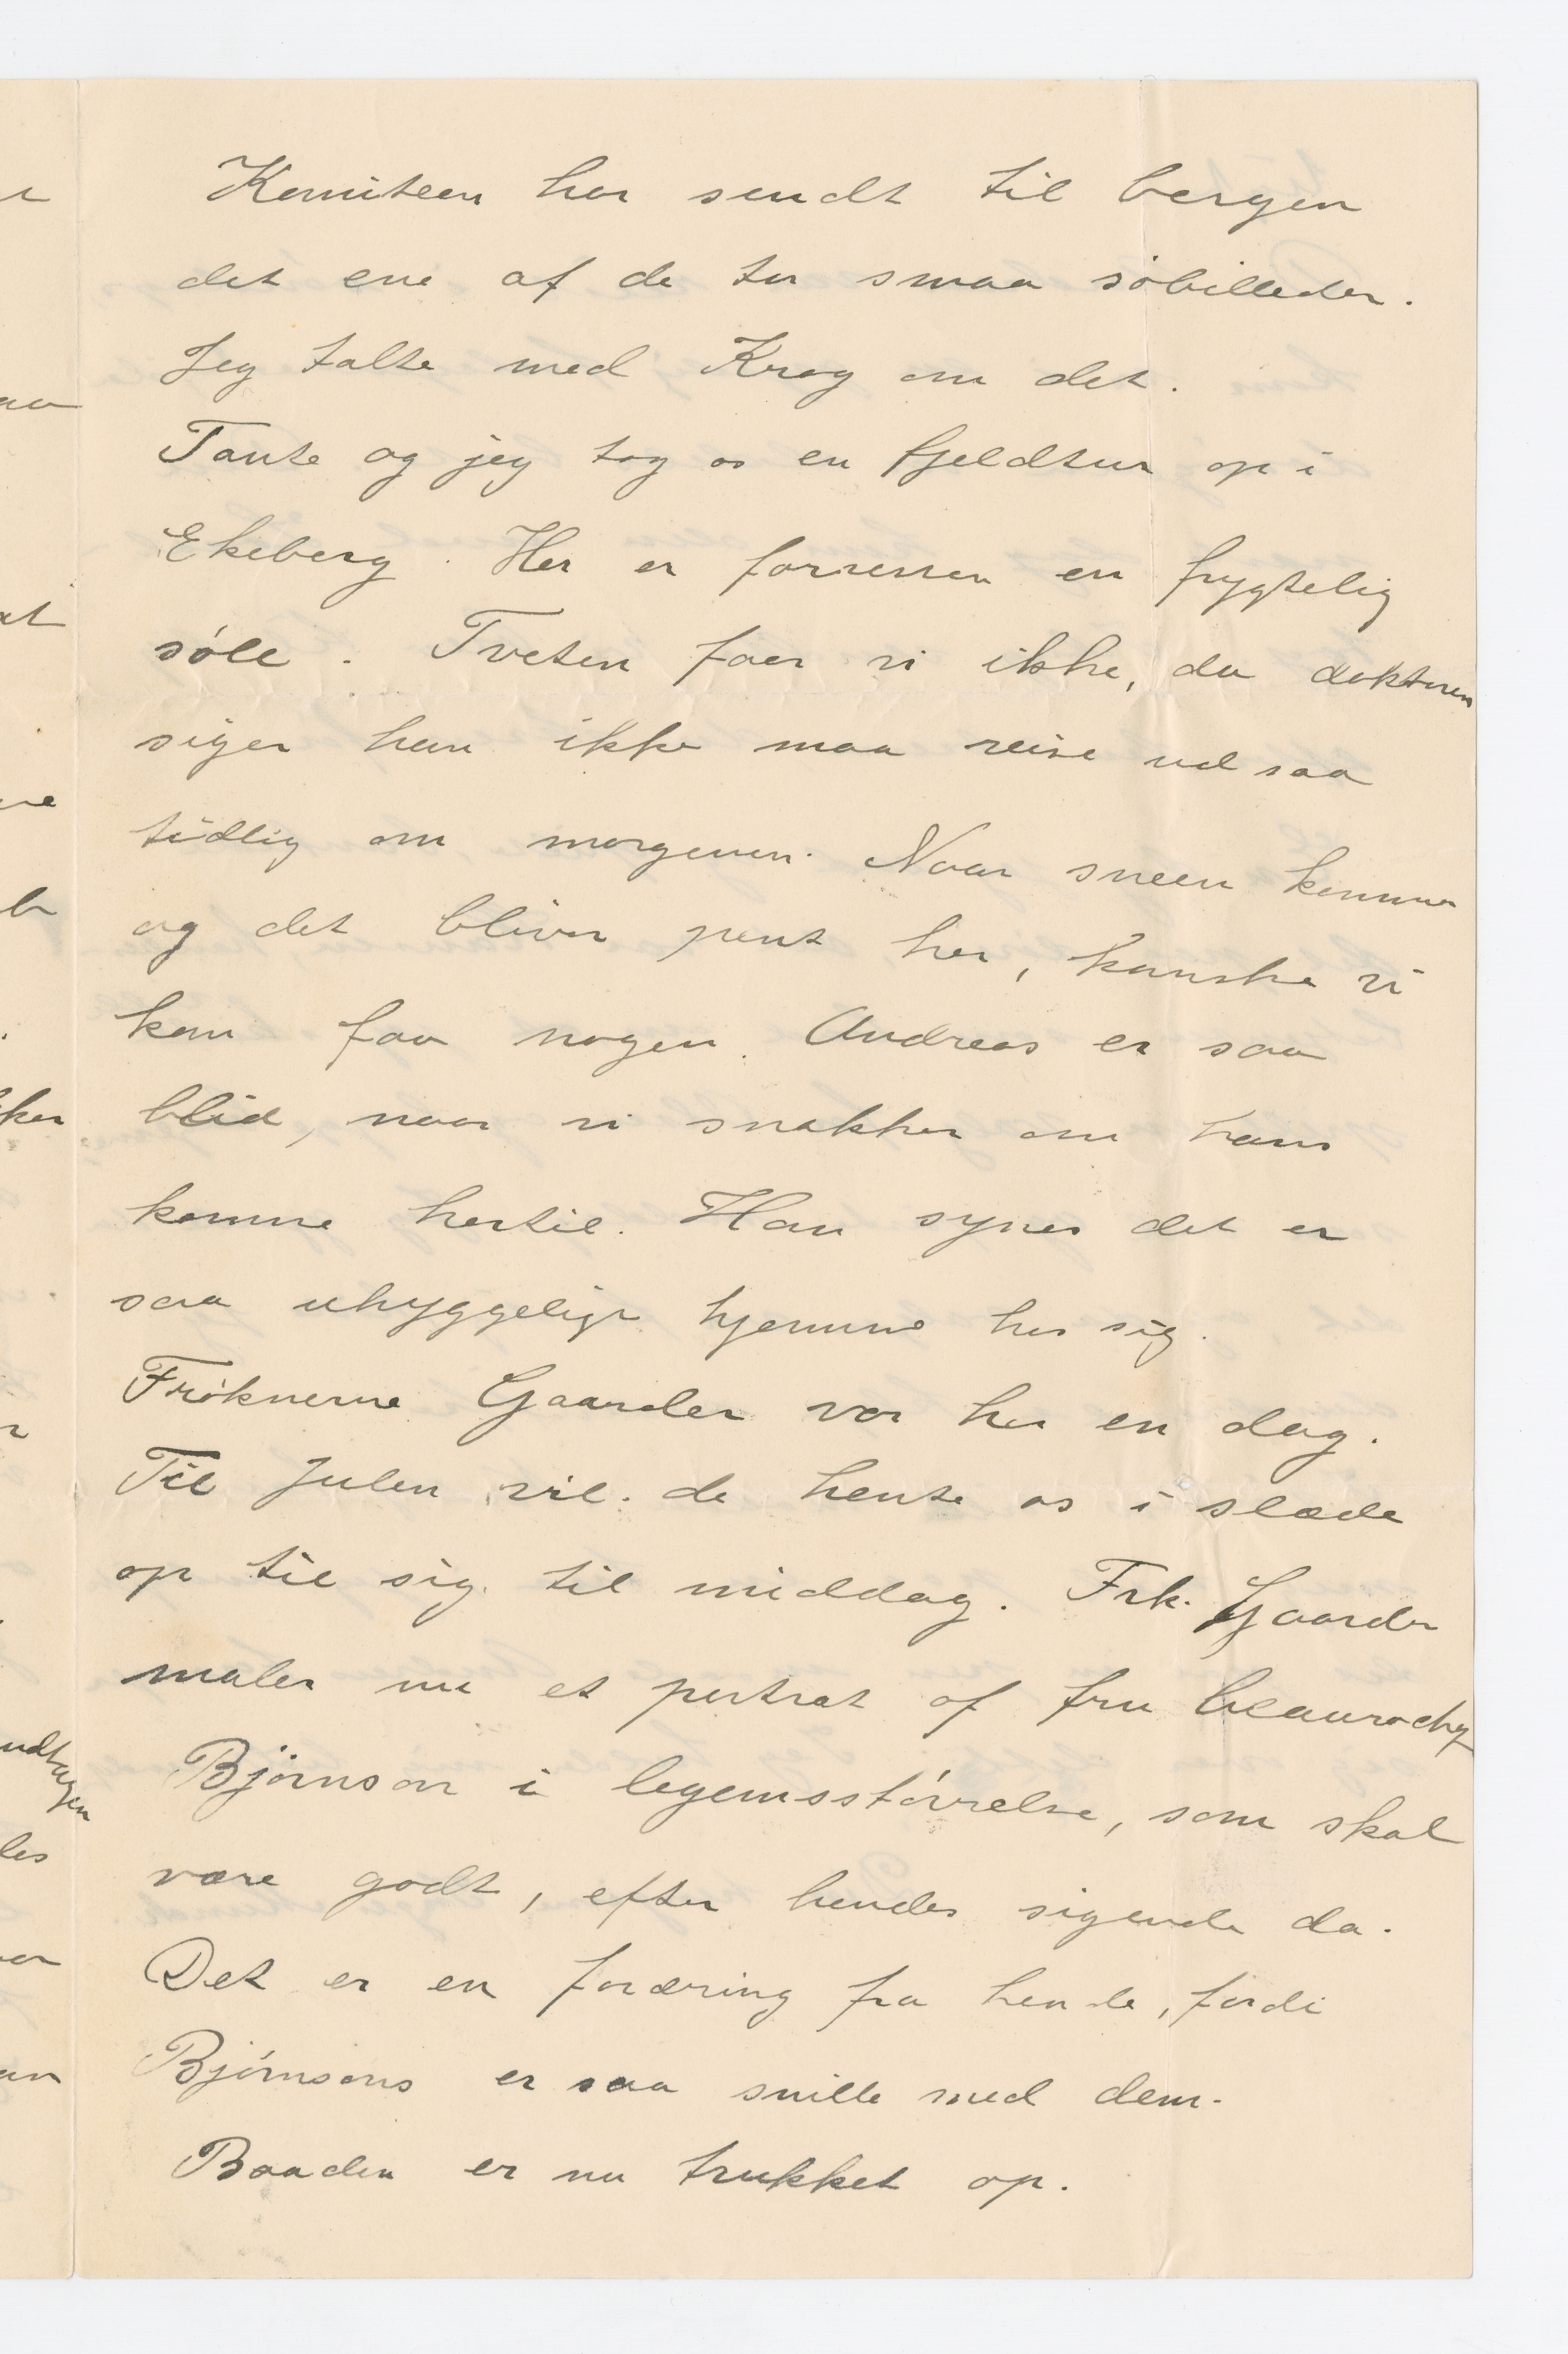 Komiteen har sendt til bergen
det ene af de to smaa søbilleder.
Jeg talte med Krog om det.
Tante og jeg tog os en fjeldtur op i
Ekeberg. Her er forresten en frygtelig
søle. Tveten faar vi ikke, da doktoren
siger han ikke maa reise ud saa
tidlig om morgenen. Naar sneen kommer
og det bliver pent her, kanske vi
kan faa nogen. Andreas er saa
blid, naar vi snakker om hans
komme hertil. Han synes det er
saa uhyggeligt hjemme hos sig.
Frøknerne Gaarder var her en dag.
Til Julen vil de hente os i slæde
op til sig til middag. Frk. Gaarder
maler nu et portræt af fru
Bjørnson i legemsstørrelse, som skal
være godt, efter hendes sigende da.
Det er en foræring fra hende, fordi
Bjørnsons er saa snille med dem.
Baaden er nu trukket op.